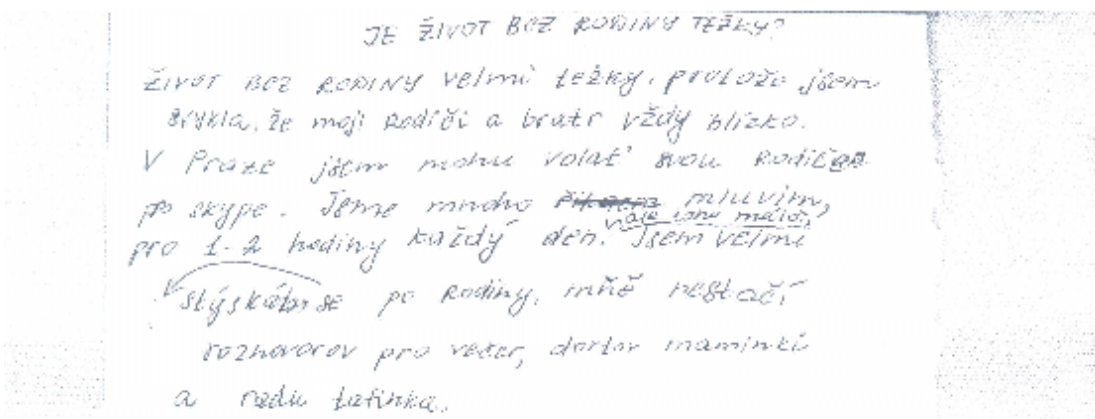 JE ŽIVOT BEZ RODINY TEŽKY?
ŽIVOT BEZ RODINY velmi težky, protože jsem
zvykla, že moji Rodiči a bratr vždy blízko.
V Praze jsem mohu volať svou Rodičea
po skype. Jsme mnoho mluvim,
ale toho málo,
pro 1-2 hodiny každý den. Jsem velmi
stýskábn se po Rodiny, mňě nestačí
rozhovorov pro večer, dortov maminki
a radu tatinka.